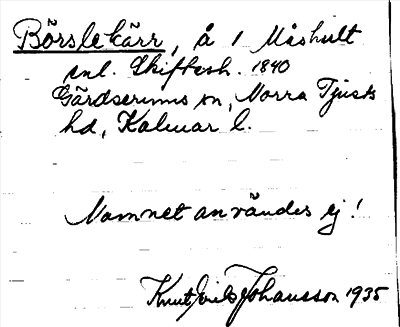 Börslekärr, å 1 Måshult
enl. Skiftesh. 1840
Gärdserums sn, Norra Tjusts
hd, Kalmar l.
Namnet användes ej!
Knut Johansson 1935